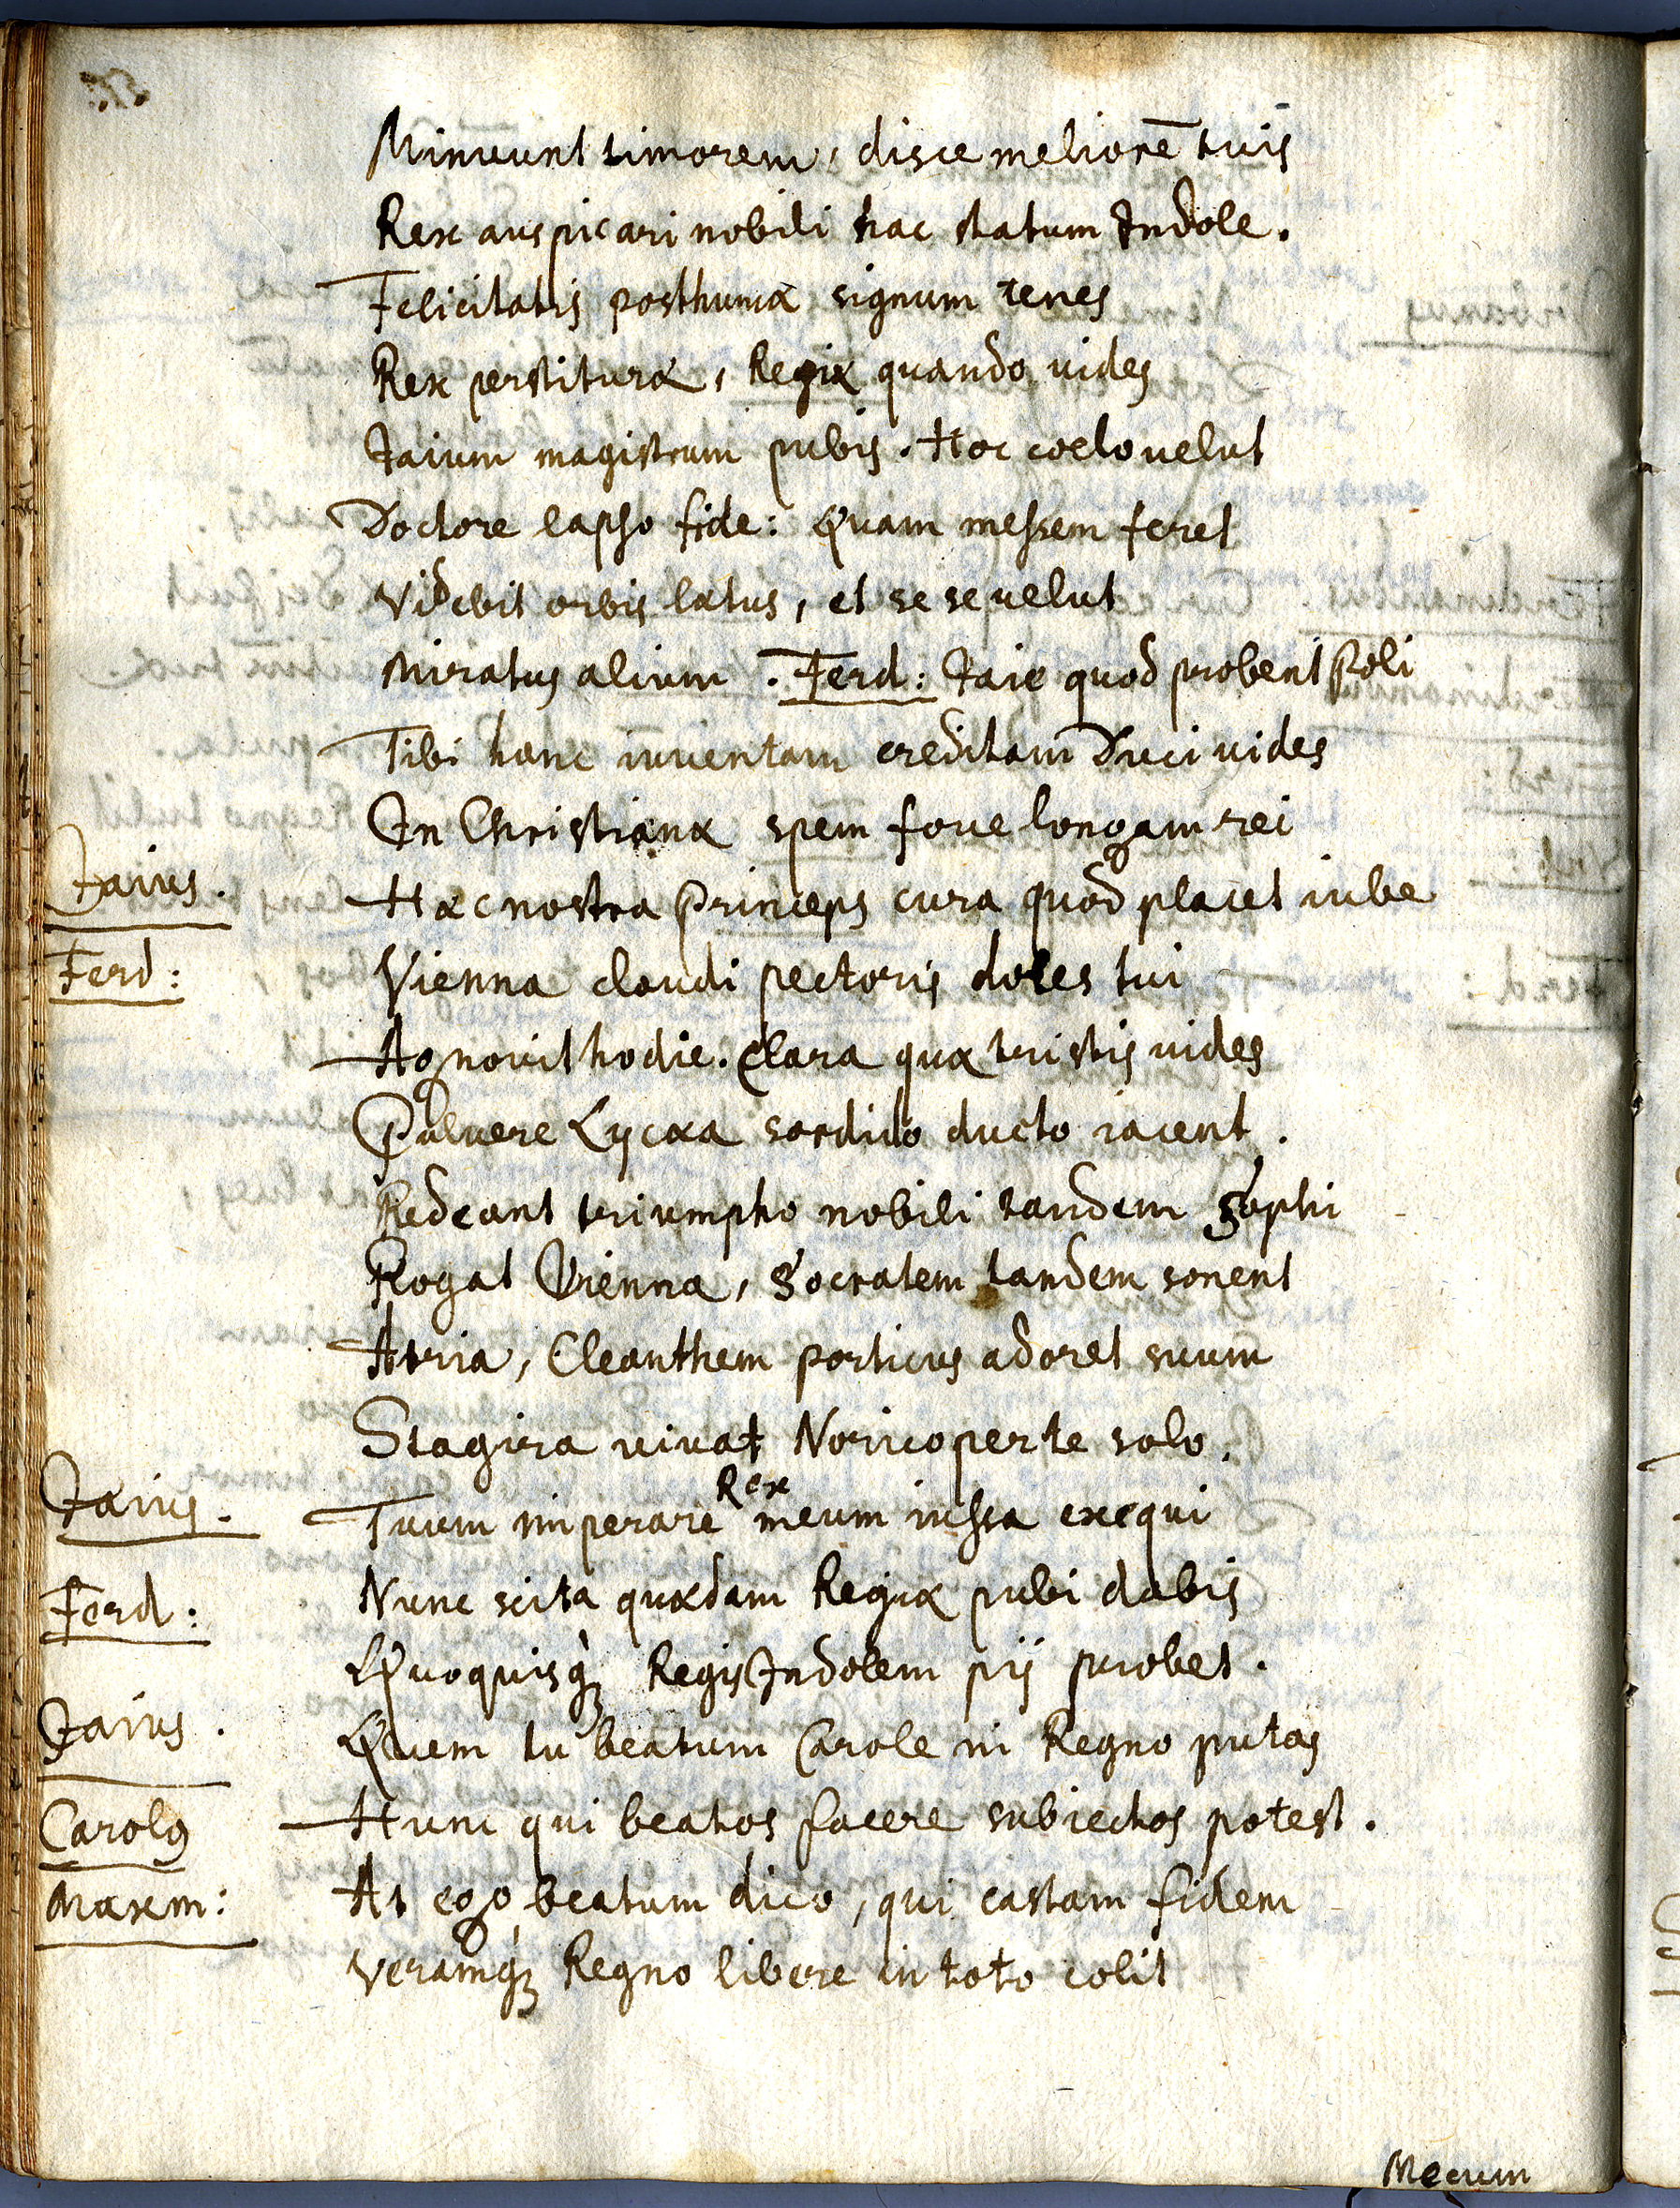 Minuunt timorem, disce meliorē tuis
Rex auspicari nobili hac statum Indole.
Felicitatis posthumæ signum tenes
Rex perstituræ, Regiæ quando uides
Jaium magistrum pubis. Hoc coelo uelut
Doctore lapso fide: Quam messem feret
Videbit orbis lætus, et se se uelut
Miratus alium. Ferd: Jaie quod probent Poli
Tibi hanc iuuentam creditam Duci uides
In Christianæ spem foue longam rei
Jaius. Hæc nostra Princeps cura quod placet iube
Ferd: Vienna claudi pectoris dotes tui
Agnouit hodie. Clara quæ tristis uides
Puluere Lycæa sordido ducto iacent.
Redeant triumpho nobili tandem Sophi
Rogat Vienna, Socratem tandem sonent
Atria, Cleanthem porticus adoret suum
Stagira uiuat Norico per te solo.
Jaius. Tuum imperare Rex meum iussa exequi
Ferd: Nunc scita quædam Regiæ pubi dabis
Quo quisq́ꝫ Regis Indolem pij probet.
Jaius. Quem tu beatum Carole in Regno putas
Carolꝯ Hunc qui beatos facere subiectos potest.
Maxm: At ego beatum dico, qui castam fidem
Veramq́ꝫ Regno libere in toto colit
Mecum